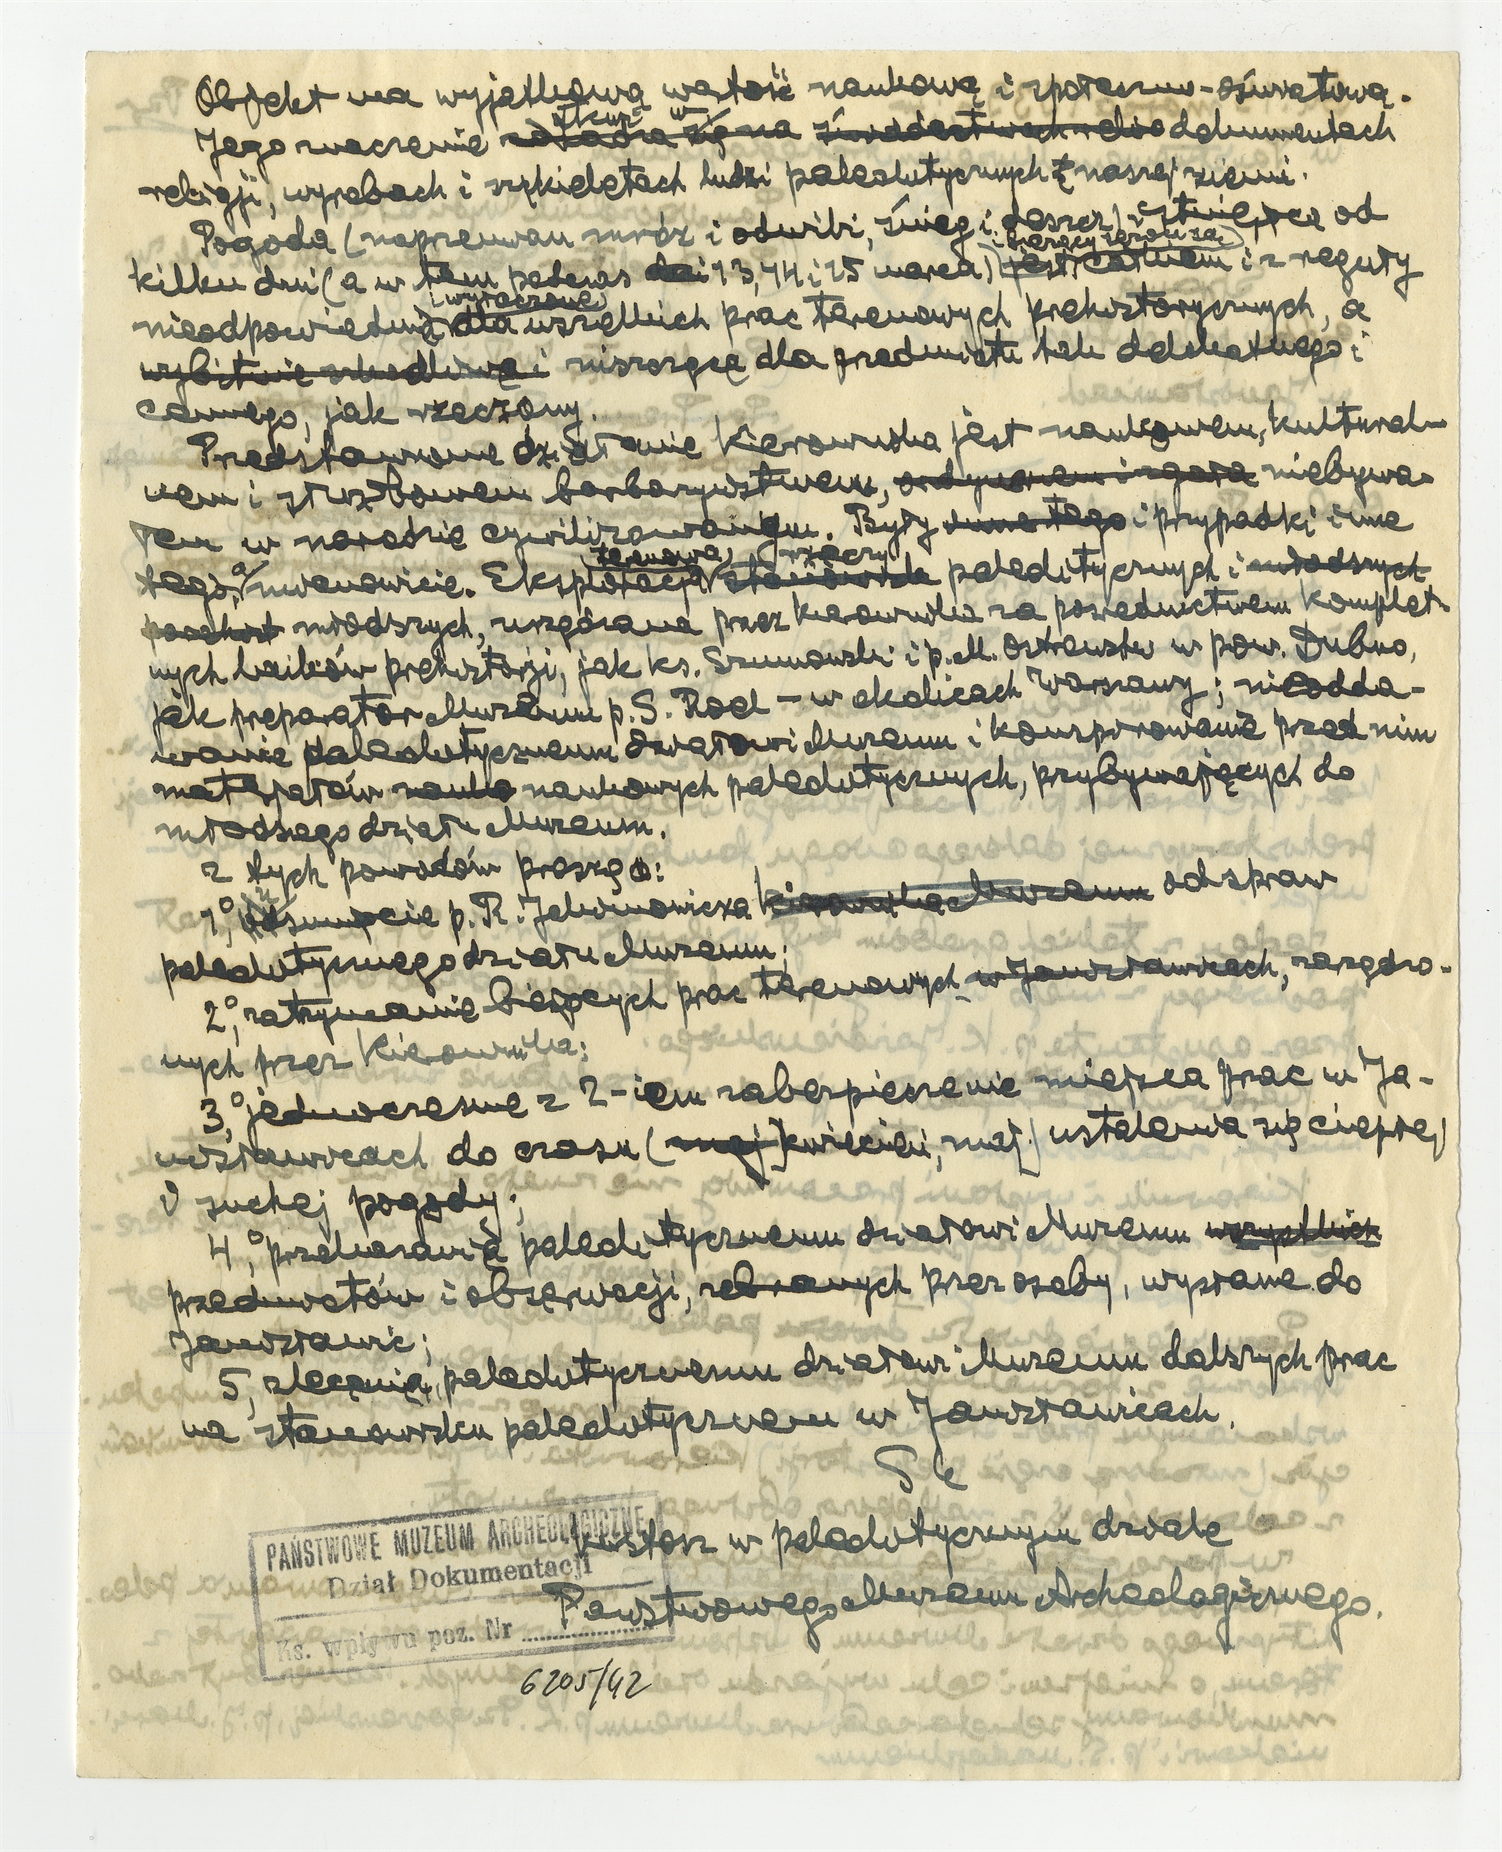 Objekt ma wyjątkową wartość naukową i społeczno-oświatową.
Jego znaczenie tkwi w dokumentach
religji, wyrobach i szkieletach ludzi paleolitycznych z naszej ziemi.
Pogoda (naprzemian mróz i odwilż, śnieg i deszcz) istniejąca od
kilku dni (a w tem podczas 13, 14 i 15 marca) i z reguły
nieodpowiednia dla wszelkich prac terenowych prehistorycznych, a
niszcząca dla przedmiotu tak delikatnego i
cennego, jak rzeczony.
Przedstawione działanie Kierownika jest naukowem, kultural-
nem i służbowem barbarzyństwem, niebywa-
łem w narodzie cywilizowanym. Były i przypadki inne
tego, a mianowicie. Eksploatacja terenowa rzeczy paleolitycznych i
młodszych, urządzana przez kierownika za pośrednictwem komplet-
nych laików prehistorji, jak ks. Szumowski i p. M. Ostrowski w pow. Dubno,
jak preparator Muzeum p. S. Roel – w okolicach Warszawy; nieodda-
wanie paleolitycznemu działowi Muzeum i konspirowanie przed nim
materjałów naukowych paleolitycznych, przybywających do
młodszego działu Muzeum.
Z tych powodów proszę o:
1°, usunięcie p. R. Jakimowicza od spraw
paleolitycznego działu Muzeum;
2°, zatrzymanie bieżących prac terenowych w Janisławicach, zarządzo-
nych przez Kierownika;
3°, jednocześnie z 2-iem zabezpieczenie miejsca prac w Ja-
nisławicach do czasu (kwiecień, maj) ustalenia się ciepłej
i suchej pogody;
4°, przekazanie paleolitycznemu działowi Muzeum
przedmiotów i obserwacji, zebranych przez osoby, wysłane do
Janisławic;
5, zlecenie paleolitycznemu działowi Muzeum dalszych prac
na stanowisku paleolitycznem w Janisławicach.
SK
Kustosz w paleolitycznym dziale
Państwowego Muzeum Archeologicznego.
PAŃSTWOWE MUZEUM ARCHEOLOGICZNE
Dział Dokumentacji
Ks. wpływu poz. Nr
6205/42